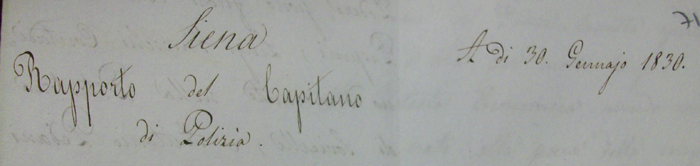 Siena
Rapporto del Capitano
di Polizia.
A di 30. Gennajo 1830.